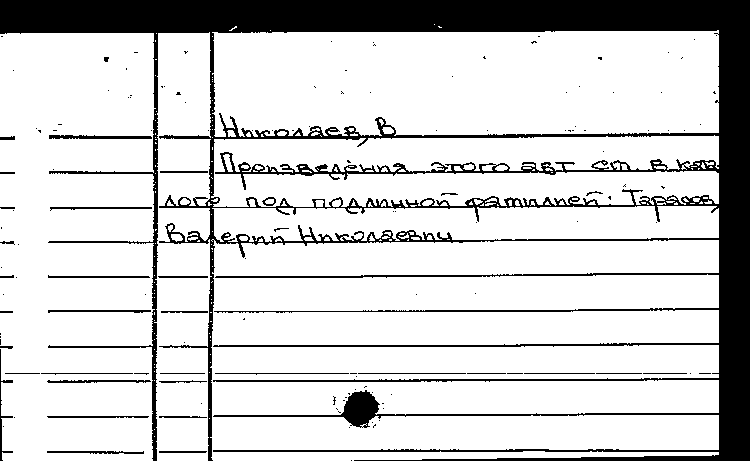 Николаев, В
Произведения этого авт см. в ката
логе под подлинной фамилией: Тарасов,
Валерий Николаевич